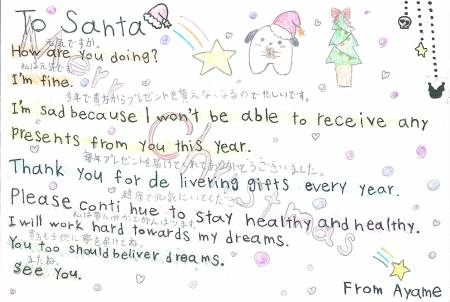 To Santa
元気ですか。
How are you doing?
私は元気です。
I'm fine.
今年で貴方からプレゼントを貰えなくなるので悲しいです。
I'm sad because I won't be able to receive any
Presents from you this year.
毎年プレゼントを届けてくれてありがとうございました。
Thank you for de livering gifts every year.
健康で元気にいてください
Please conti nue to stay healthy and healthy.
私は夢に向かってがんばります。
I will work hard towards my dreams.
貴方も子供に夢を届けてね。
You too should beliver dreams.
またね。
See You.
From Ayame
Merry
Christmas